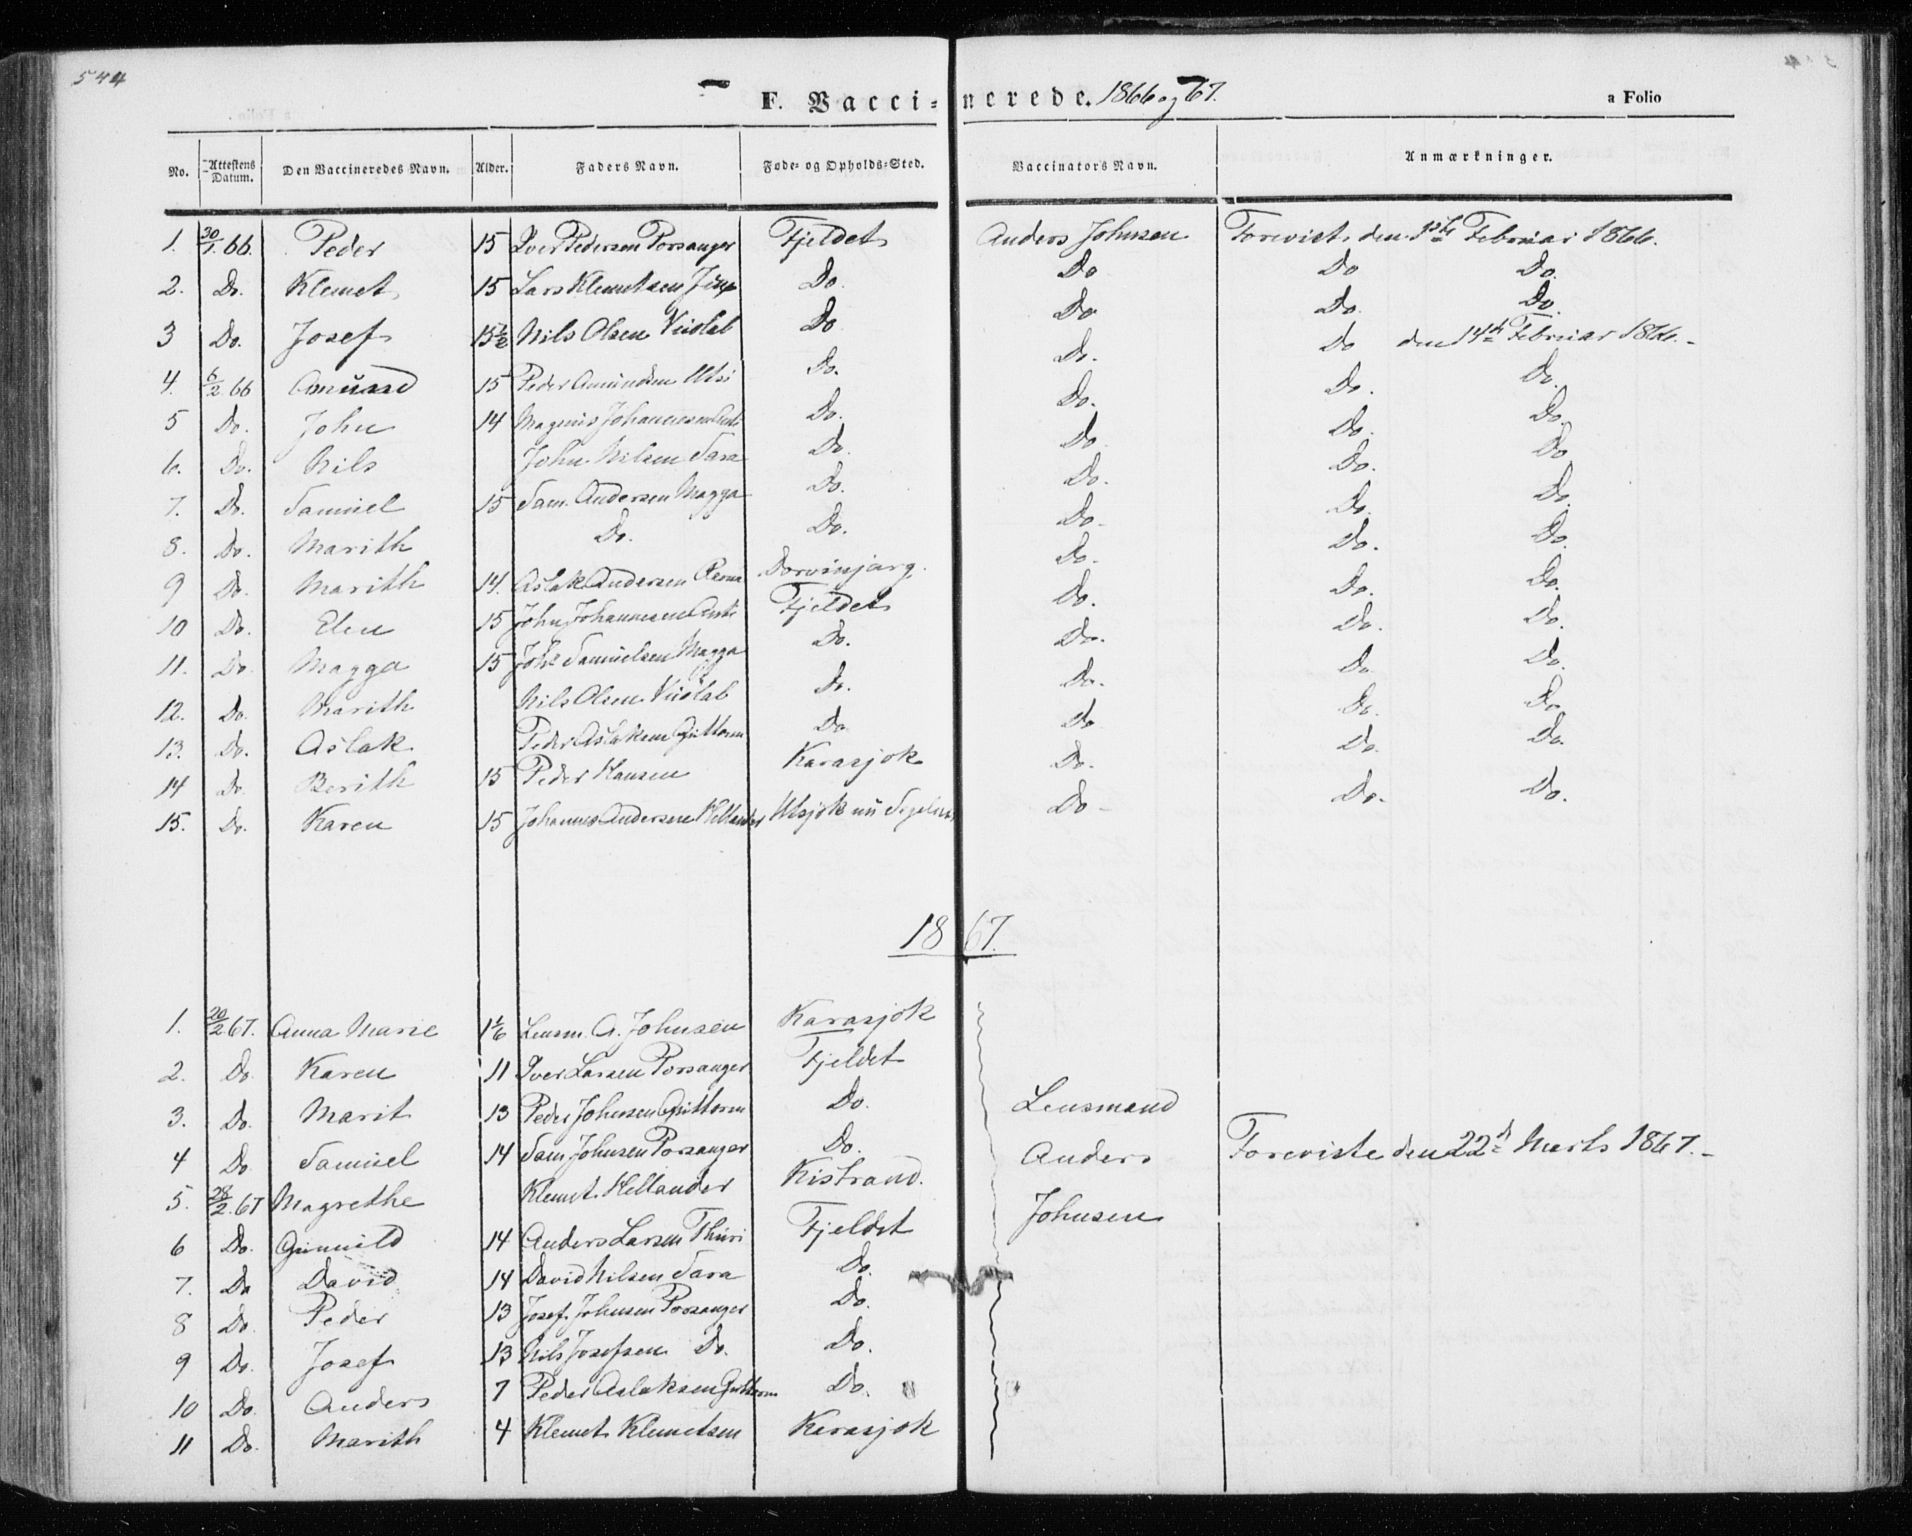 544
F. Vaccinerede. 1866 og 67.
a Folio
No. Attestens Datum. Den Vaccineredes Navn. Alder. Faders Navn. Føde- og Opholds-Sted. Vaccinators Navn. Anmærkninger.
1. 30/1. 66. Peder 15 Iver Pedersen Porsanger Fjeldet Anders Johnsen Forevist den 1ste Februar 1866.
2. Do. Klemet 15 Lars Klemetsen Do. Do Do Do.
3 Do. Josef 15½ Nils Olsen Vuolab Do Do Do. Do.
4. 6/2 66 Amund 15 Peder Amundsen Utsi Do. Do. Do den 14de Februar 1866.
5 Do. John 14 Magnus Johannesen Anti Do. Do. Do. Do.
6. Do. Nils John Nilsen Sara Do. Do Do. Do.
7. Do. Samuel 15 Sam. Andersen Magga Do. Do. Do. Do
8. Do. Marith Do. Do. Do. Do. Do.
9 Do. Marith 14. Aslak Andersen Dorvinjarg. Do. Do. Do.
10 Do. Elen 15 John Johannesen Anti Fjeldet Do. Do. Do.
11. Do. Magga 15 Johs Samuelsen Magga Do. Do. Do. Do.
12. Do. Marith Nils Olsen Vuolab Do. Do. Do. Do.
13. Do. Aslak Peder Aslaksen Guttorm Do Do Do. Do.
14 Do. Berith 15 Peder Hansen Karasjok Do. Do. Do.
15. Do. Karen 15 Johannes Andersen Hellander Utsjok nu Do Do. Do.
1867.
1. 20/2 67. Anna Marie 1 1/6 Lensm. A. Johnsen Karasjok
2. Do. Karen 11 Iver Larsen Porsanger Fjeldet
3. Do. Marit 13 Peder Johnsen Guttorm Do. Lensmand
4 Do Samuel 14 Sam. Johnsen Porsanger Do. Anders Foreviste den 22de Marts 1867.
5. 28/2. 67 Magrethe Klemet Hellander Kistrand. Johnsen
6 Do. Gunnild 14 Anders Larsen Thuri Fjeldet
7. Do David 14 David Nilsen Sara Do.
8 Do. Peder 13 Josef Johnsen Porsanger Do.
9 Do. Josef 13 Nils Josefsen Do. Do.
10 Do. Anders 7 Peder Aslaksen Guttorm Do.
11 Do. Marith 4 Klemet Klemetsen Karasjok